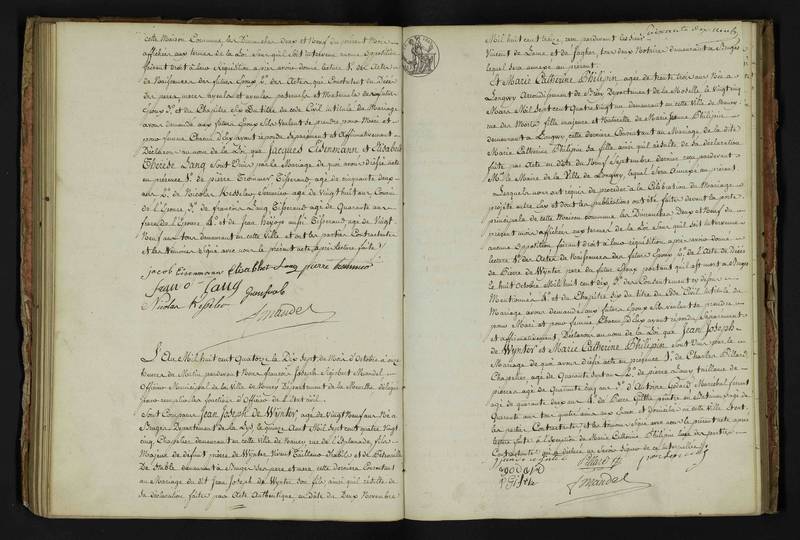 cette Maison Commune, les Dimanches deux et Neuf du présent Mois
afficher aux termes de la Loi sans qu'il soit intervenu aucune opposition
faisant droit à leur Réquisition après avoir donné lecture 1° des Actes
de Naissances des futurs Epoux 2° des Actes qui Constatent du Décès
des pères, mères ayeuls et ayeules paternels et Maternels
Epoux 3° et du Chapitre Six du titre du code Civil intitulé du Mariage
avons demandé aux futurs Epoux s'ils veulent se prendre pour Mari et
pour femme, Chacun d'eux ayant répondu séparément et Affirmativement
Déclarons au nom de la Loi que Jacques Eisenmann et Elisabeth
Thérèse Lang sont Unis par le Mariage de quoi avons dressé acte
en présence 1° de pierre Tisserand, agé de cinquante deux
ans 2° de Nicolas Kesseler agé de Vingt huit ans Cousin
de l'Epouse 3° de françois Lang Tisserand agé de Quarante ans
frère de l'Epouse 4° et de Jean aussi Tisserand agé de Vingt
Neuf ans tous demeurant en cette Ville et ont les parties Contractantes
et les témoins signé avec nous le présent acte, après lecture faite
jacob Eisenmann Elisabhet Lang pierre
Lang
Nicolas Kesseler
Mandel
L'An Mil huit cent Quatorze le Dix Sept du Mois d'Octobre à onze
heures du Matin pardevant Nous françois Joseph Mandel
Officier Municipal de la Ville de Nancy Département de la Meurthe délégué
pour remplir les fonctions d'Officier de l'Etat civil
Sont Comparus Jean Joseph de Wynter, agé de Vingt Neuf ans Né à
Bruges Département de la Lys, le quinze Août Mil Sept cent quatre Vingt
cinq, Chapelier demeurant en cette Ville de Nancy rue de l'Esplanade, fils
Majeur de défunt pierre de Wynter, Vivant Tailleur d'habits et de Pétronille
De Stable demeurant à Bruges des père et mère cette Dernière Consentant
au Mariage du dit Jean Joseph de Wynter son fils ainsi qu'il résulte de
sa déclaration faite par Acte Authentique en date du Deux Novembre
Mil huit cent treize, reçu pardevant les Sieurs
Vincent de Lame et de Jaghere, tous deux Notaires demeurant à Bruges
lequel sera annexé au présent
Et Marie Catherine Philipin agée de trente trois ans Née à
Longwy Arrondissement de Briey Département de la Moselle, le Vingt cinq
Mars Mil Sept cent Quatre Vingt un demeurant en cette Ville de Nancy
rue des Morts fille majeure et Naturelle de Marie Jeanne Philipin
demeurant à Longwy, cette dernière Consentant au Mariage de la dite
Marie Catherine Philipin sa fille ainsi qu'il résulte de sa déclaration
faite par Acte en date du Neuf Septembre dernier reçu pardevant
Mr le Maire de la Ville de Longwy, lequel sera Annexé au présent
Lesquels nous ont requis de procéder à la Célébration du Mariage
projeté entre eux et dont les publications ont été faites devant la porte
principale de cette Maison commune les Dimanches Deux et Neuf du
présent mois afficher aux termes de la Loi Sans qu'il soit intervenu
aucune opposition faisant droit à leur réquisition, après avoir donné
lecture 1° des Actes de Naissances des futurs Epoux 2° de l'Acte de Décès
de Pierre de Wynter père du futur Epoux portant qu'il est mort à Bruges
le huit Octobre Mil huit cent dix 3° des Consentements ci dessus
Mentionnés 4° et du Chapitre Six du titre du Code Civil intitulé du
Mariage avons demandé aux futurs Epoux s'ils veulent se prendre
pour Mari et pour femme, Chacun d'eux ayant répondu Séparément
et affirmativement, Déclarons au nom de la Loi que Jean Joseph
de Wynter et Marie Catherine Philipin sont Unis par le
Mariage de quoi avons dressé acte en présence 1° de Charles Pillard
Chapelier, agé de Quarante Sept ans 2° de pierre tailleur de
pierres agé de Quarante ans 3° d'Antoine Godard Maréchal ferrant
agé de quarante deux ans 4° de Pierre agé de
Quarante un ans tous quatre amis aux Epoux et Domiciliés en cette Ville et ont
les parties Contractantes et les témoins signé avec nous le présent acte après
lecture faite à l'exception de Marie Catherine Philipin l'une des parties
Contractantes qui a déclaré ne savoir signer de ce interpellée
Pillard
godard
Mandel